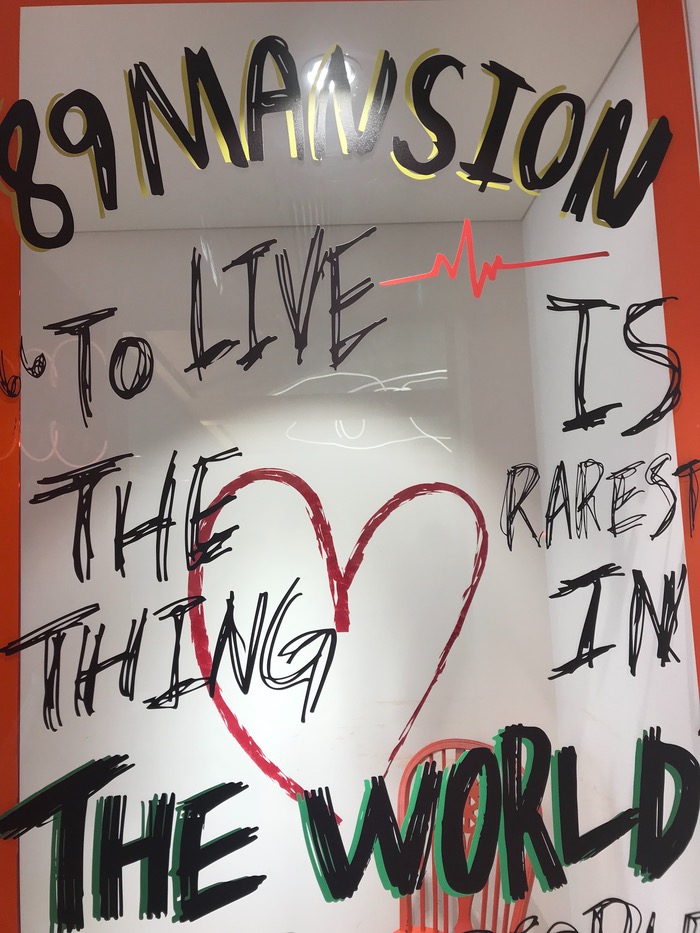 89 MANSION
“TO LIVE IS
THE RAREST
THING IN
THE WORLD